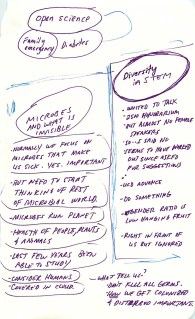 open science
Family
emergency
Diabetes
MICROBES
AND WHAT IS
INVISIBLE
- NORMALLY WE FOCUS ON
MICROBES THAT MAKE
US SICK. YES. IMPORTANT
- BUT NEED TO START
THINKING OF REST
OF MICROBIAL WORLD.
- MICROBES RUN PLANET
- HEALTH OF PEOPLE, PLANTS
& ANIMALS
- LAST FEW YEARS BEEN
ABLE TO STUDY
- CONSIDER HUMANS
COVERED IN CLOUD
Diversity
in STEM
WANTED TO TALK
HONORARIUM
BUT ALMOST NO FEMALE
SPEAKERS
SO I SAID NO
SEEMS TO HAVE WORKED
OUT SINCE ASKED
FOR SUGGESTIONS
UCD ADVANCE
DO SOMETHING
GENDER RATIO IS
LOW HANGING FRUIT
RIGHT IN FRONT OF
US BUT IGNORED
WHAT TELL US?
DON'T KILL ALL GERMS.
HOW WE GET COLONIZED
& DISTURBED IMPORTANT.